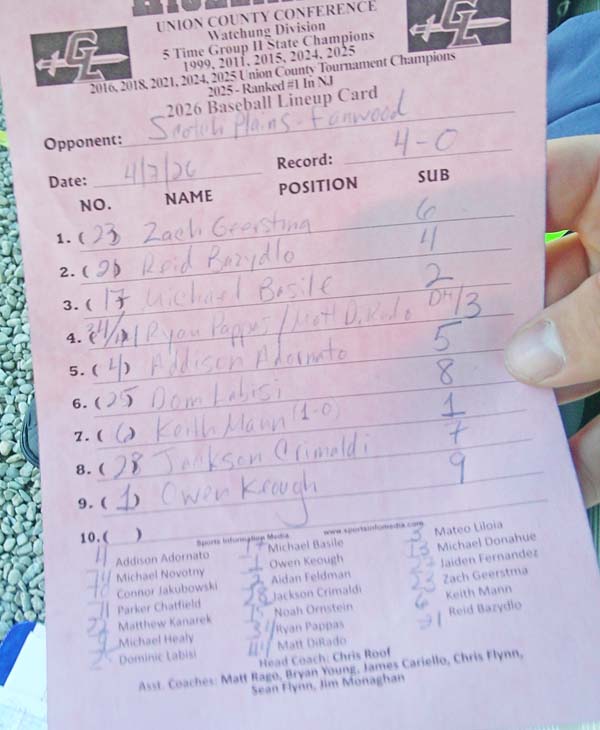 GL
GL
UNION COUNTY CONFERENCE
Watchung Division
5 Time Group II State Champions
1999, 2011, 2015, 2024, 2025
2016, 2018, 2021, 2024, 2025 Union County Tournament Champions
2025 - Ranked #1 In NJ
2026 Baseball Lineup Card
Opponent: Scotch Plains - Fanwood
Date: 4/7/26 Record: 4-0
NO. NAME POSITION SUB
1. (23) Zach Geerstma 6
2. (21) Reid Bazydlo 4
3. (17) Michael Basile 2
4. Ryan Pappas / Matt DiRado DH/3
5. (4) Addison Adornato 5
6. (25) Dom Labisi 8
7. (6) Keith Mann (1-0) 1
8. (28) Jackson Crimaldi 7
9. (1) Owen Keough 9
10. ( )
Sports Information Media www.sportsinfomedia.com
Addison Adornato 17 Michael Basile 3 Mateo Liloia
Michael Novotny 1 Owen Keough 13 Michael Donahue
Connor Jakubowski 2 Aidan Feldman Jaiden Fernandez
Parker Chatfield 28 Jackson Crimaldi 23 Zach Geerstma
Matthew Kanarek Noah Ornstein 6 Keith Mann
Michael Healy 34 Ryan Pappas 21 Reid Bazydlo
Dominic Labisi Matt DiRado
Head Coach: Chris Roof
Asst. Coaches: Matt Rago, Bryan Young, James Cariello, Chris Flynn,
Sean Flynn, Jim Monaghan